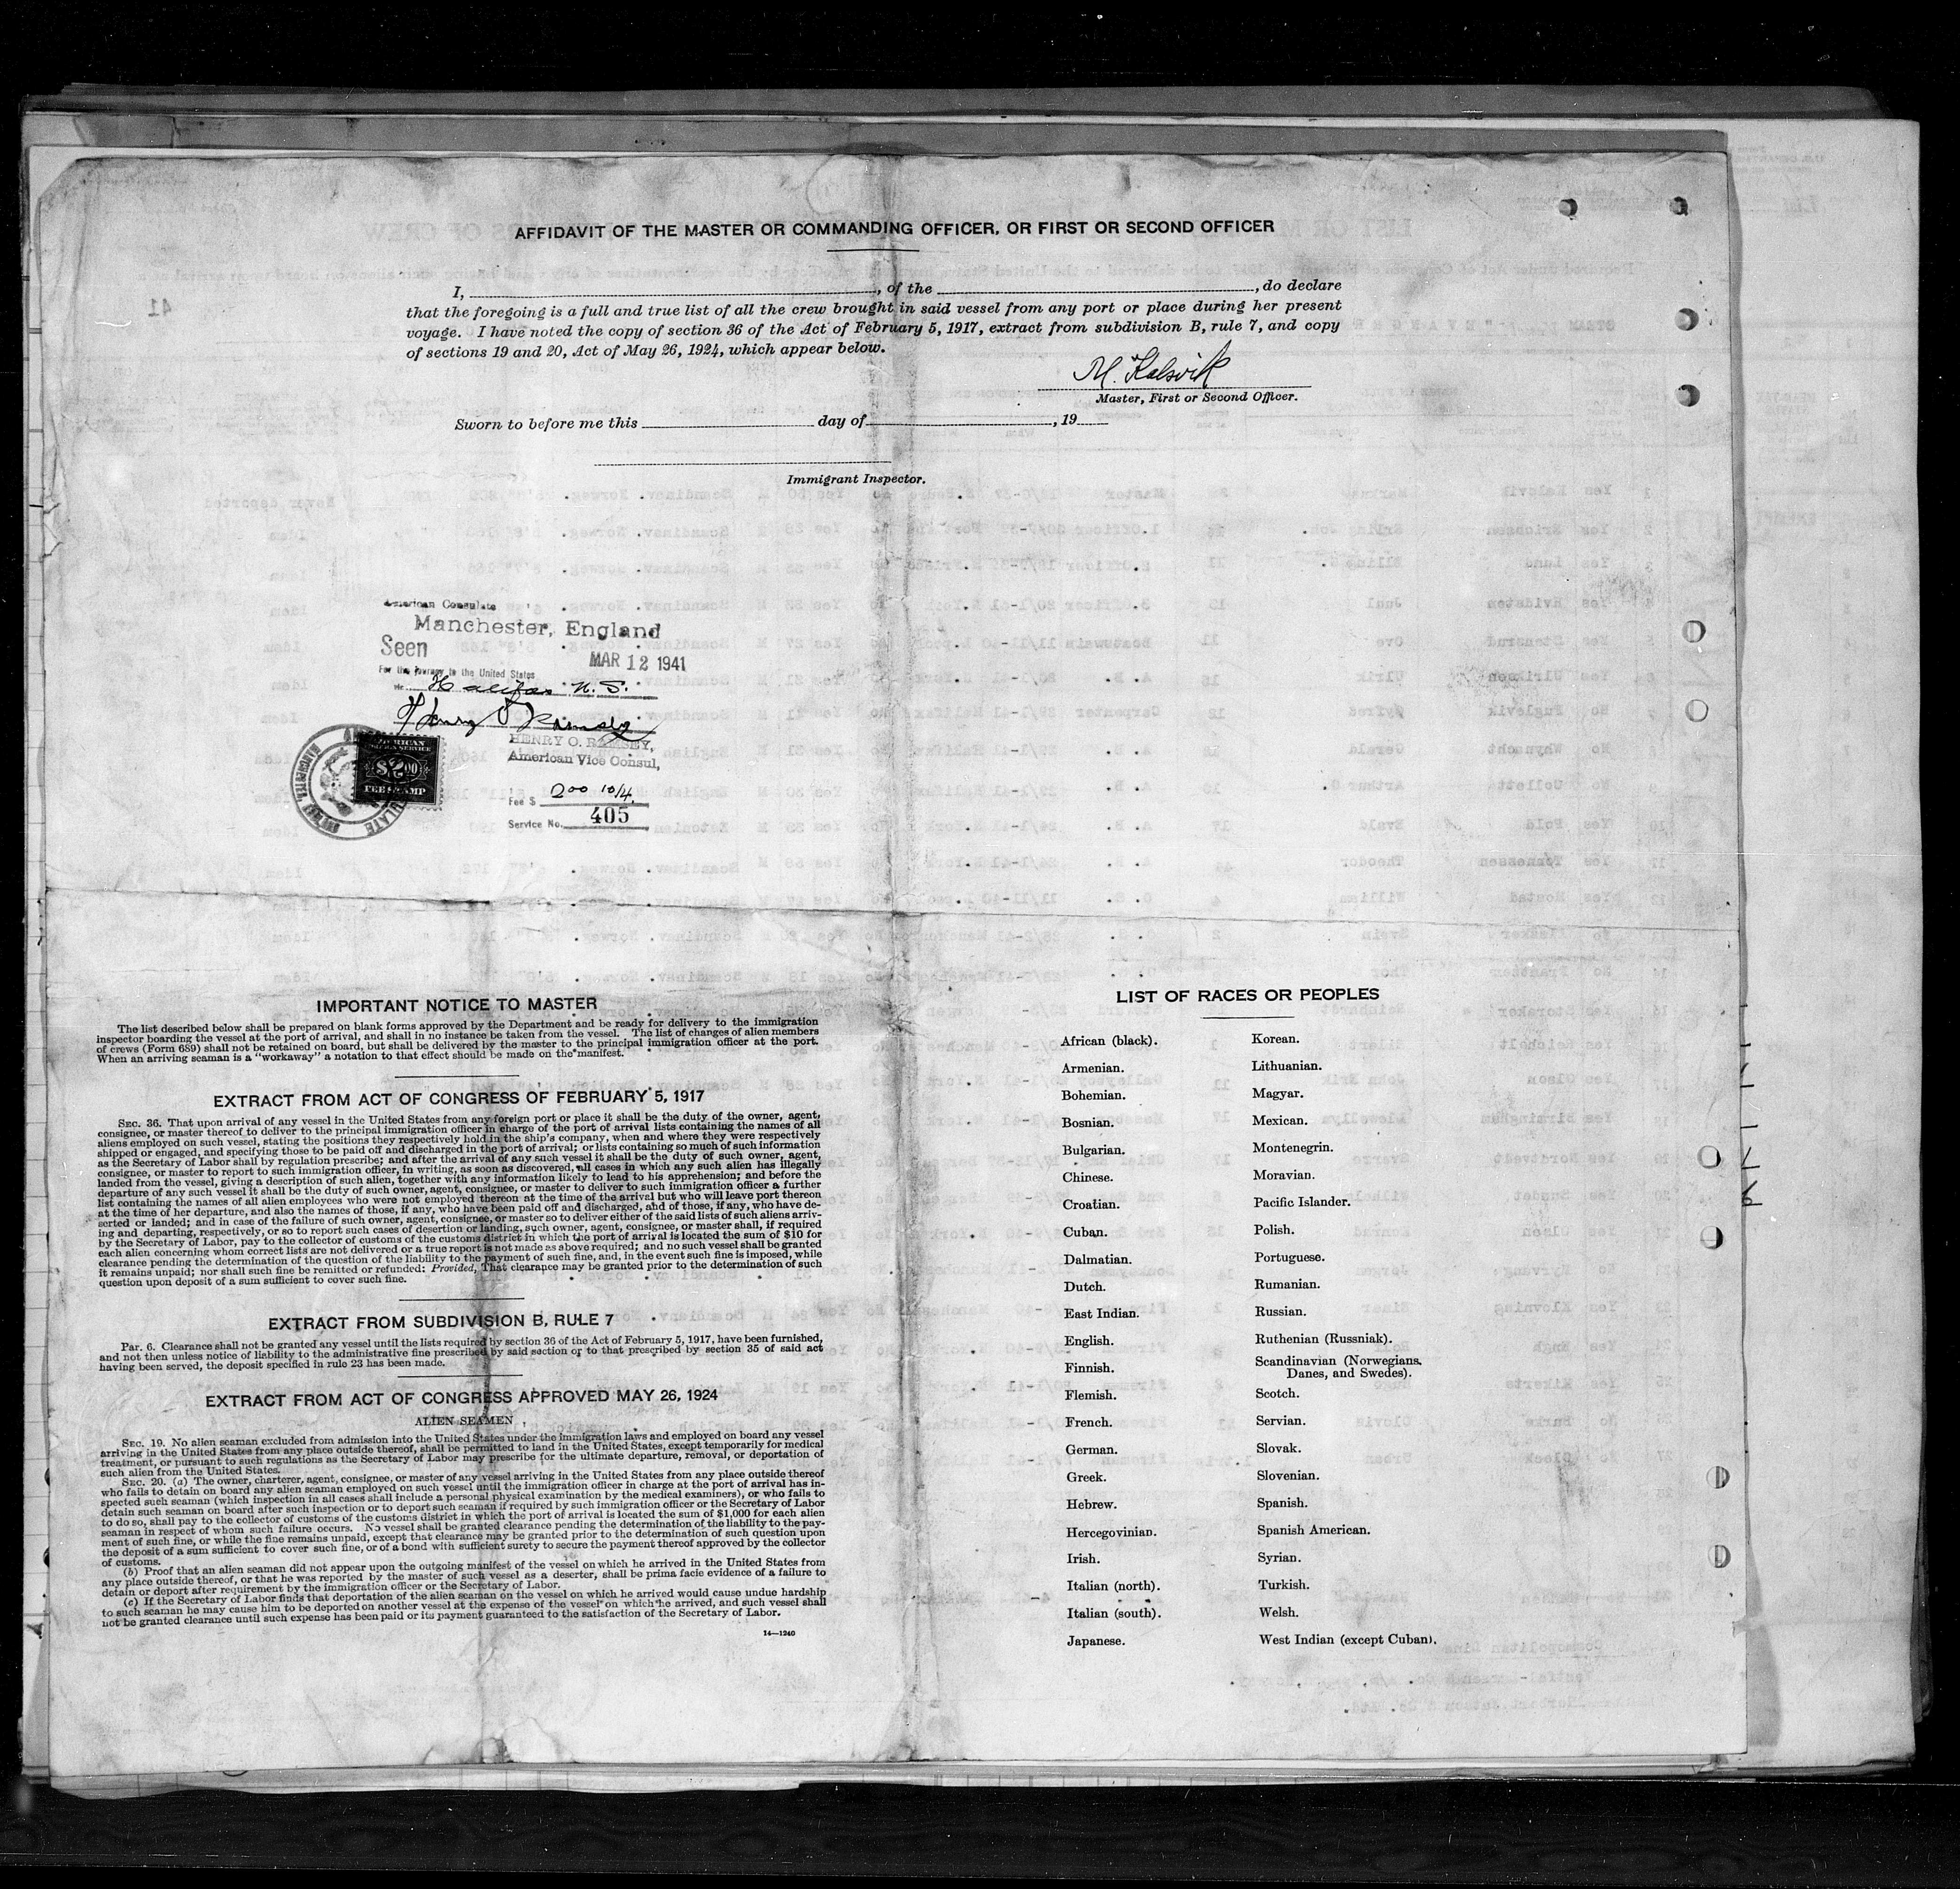 AFFIDAVIT OF THE MASTER OR COMMANDING OFFICER, OR FIRST OR SECOND OFFICER
I, , of the , do declare
that the foregoing is a full and true list of all the crew brought in said vessel from any port or place during her present
voyage. I have noted the copy of section 36 of the Act of February 5, 1917, extract from subdivision B, rule 7, and copy
of sections 19 and 20, Act of May 26, 1924, which appear below.
M. Kalsvik
Master, First or Second Officer.
Sworn to before me this day of , 19
Immigrant Inspector.
American Consulate
Manchester, England
Seen
MAR 12 1941
For the journey to the United States
via Halifax N. S.
Henry O Ramsey
HENRY O. RAMSEY,
American Vice Consul,
AMERICAN
FOREIGN SERVICE
$2.00
FEE STAMP
Fee $ 2.00 10/4.
Service No. 405
IMPORTANT NOTICE TO MASTER
The list described below shall be prepared on blank forms approved by the Department and be ready for delivery to the immigration
inspector boarding the vessel at the port of arrival, and shall in no instance be taken from the vessel. The list of changes of alien members
of crews (Form 689) shall not be retained on board, but shall be delivered by the master to the principal immigration officer at the port.
When an arriving seaman is a "workaway" a notation to that effect should be made on the manifest.
EXTRACT FROM ACT OF CONGRESS OF FEBRUARY 5, 1917
SEC. 36. That upon arrival of any vessel in the United States from any foreign port or place it shall be the duty of the owner, agent,
consignee, or master thereof to deliver to the principal immigration officer in charge of the port of arrival lists containing the names of all
aliens employed on such vessel, stating the positions they respectively hold in the ship's company, when and where they were respectively
shipped or engaged, and specifying those to be paid off and discharged in the port of arrival; or lists containing so much of such information
as the Secretary of Labor shall by regulation prescribe; and after the arrival of any such vessel it shall be the duty of such owner, agent,
consignee, or master to report to such immigration officer, in writing, as soon as discovered, all cases in which any such alien has illegally
landed from the vessel, giving a description of such alien, together with any information likely to lead to his apprehension; and before the
departure of any such vessel it shall be the duty of such owner, agent, consignee, or master to deliver to such immigration officer a further
list containing the names of all alien employees who were not employed thereon at the time of the arrival but who will leave port thereon
at the time of her departure, and also the names of those, if any, who have been paid off and discharged, and of those, if any, who have de-
serted or landed; and in case of the failure of such owner, agent, consignee, or master so to deliver either of the said lists of such aliens arriv-
ing and departing, respectively, or so to report such cases of desertion or landing, such owner, agent, consignee, or master shall, if required
by the Secretary of Labor, pay to the collector of customs of the customs district in which the port of arrival is located the sum of $10 for
each alien concerning whom correct lists are not delivered or a true report is not made as above required; and no such vessel shall be granted
clearance pending the determination of the question of the liability to the payment of such fine, and, in the event such fine is imposed, while
it remains unpaid; nor shall such fine be remitted or refunded: Provided, That clearance may be granted prior to the determination of such
question upon deposit of a sum sufficient to cover such fine.
EXTRACT FROM SUBDIVISION B, RULE 7
Par. 6. Clearance shall not be granted any vessel until the lists required by section 36 of the Act of February 5, 1917, have been furnished,
and not then unless notice of liability to the administrative fine prescribed by said section or to that prescribed by section 35 of said act
having been served, the deposit specified in rule 23 has been made.
EXTRACT FROM ACT OF CONGRESS APPROVED MAY 26, 1924
ALIEN SEAMEN
SEC. 19. No alien seaman excluded from admission into the United States under the immigration laws and employed on board any vessel
arriving in the United States from any place outside thereof, shall be permitted to land in the United States, except temporarily for medical
treatment, or pursuant to such regulations as the Secretary of Labor may prescribe for the ultimate departure, removal, or deportation of
such alien from the United States.
SEC. 20. (a) The owner, charterer, agent, consignee, or master of any vessel arriving in the United States from any place outside thereof
who fails to detain on board any alien seaman employed on such vessel until the immigration officer in charge at the port of arrival has in-
spected such seaman (which inspection in all cases shall include a personal physical examination by the medical examiners), or who fails to
detain such seaman on board after such inspection or to deport such seaman if required by such immigration officer or the Secretary of Labor
to do so, shall pay to the collector of customs of the customs district in which the port of arrival is located the sum of $1,000 for each alien
seaman in respect of whom such failure occurs. No vessel shall be granted clearance pending the determination of the liability to the pay-
ment of such fine, or while the fine remains unpaid, except that clearance may be granted prior to the determination of such question upon
the deposit of a sum sufficient to cover such fine, or of a bond with sufficient surety to secure the payment thereof approved by the collector
of customs.
(b) Proof that an alien seaman did not appear upon the outgoing manifest of the vessel on which he arrived in the United States from
any place outside thereof, or that he was reported by the master of such vessel as a deserter, shall be prima facie evidence of a failure to
detain or deport after requirement by the immigration officer or the Secretary of Labor.
(c) If the Secretary of Labor finds that deportation of the alien seaman on the vessel on which he arrived would cause undue hardship
to such seaman he may cause him to be deported on another vessel at the expense of the vessel on which he arrived, and such vessel shall
not be granted clearance until such expense has been paid or its payment guaranteed to the satisfaction of the Secretary of Labor.
14—1240
LIST OF RACES OR PEOPLES
African (black).
Armenian.
Bohemian.
Bosnian.
Bulgarian.
Chinese.
Croatian.
Cuban.
Dalmatian.
Dutch.
East Indian.
English.
Finnish.
Flemish.
French.
German.
Greek.
Hebrew.
Hercegovinian.
Irish.
Italian (north).
Italian (south).
Japanese.
Korean.
Lithuanian.
Magyar.
Mexican.
Montenegrin.
Moravian.
Pacific Islander.
Polish.
Portuguese.
Rumanian.
Russian.
Ruthenian (Russniak).
Scandinavian (Norwegians,
Danes, and Swedes).
Scotch.
Servian.
Slovak.
Slovenian.
Spanish.
Spanish American.
Syrian.
Turkish.
Welsh.
West Indian (except Cuban).